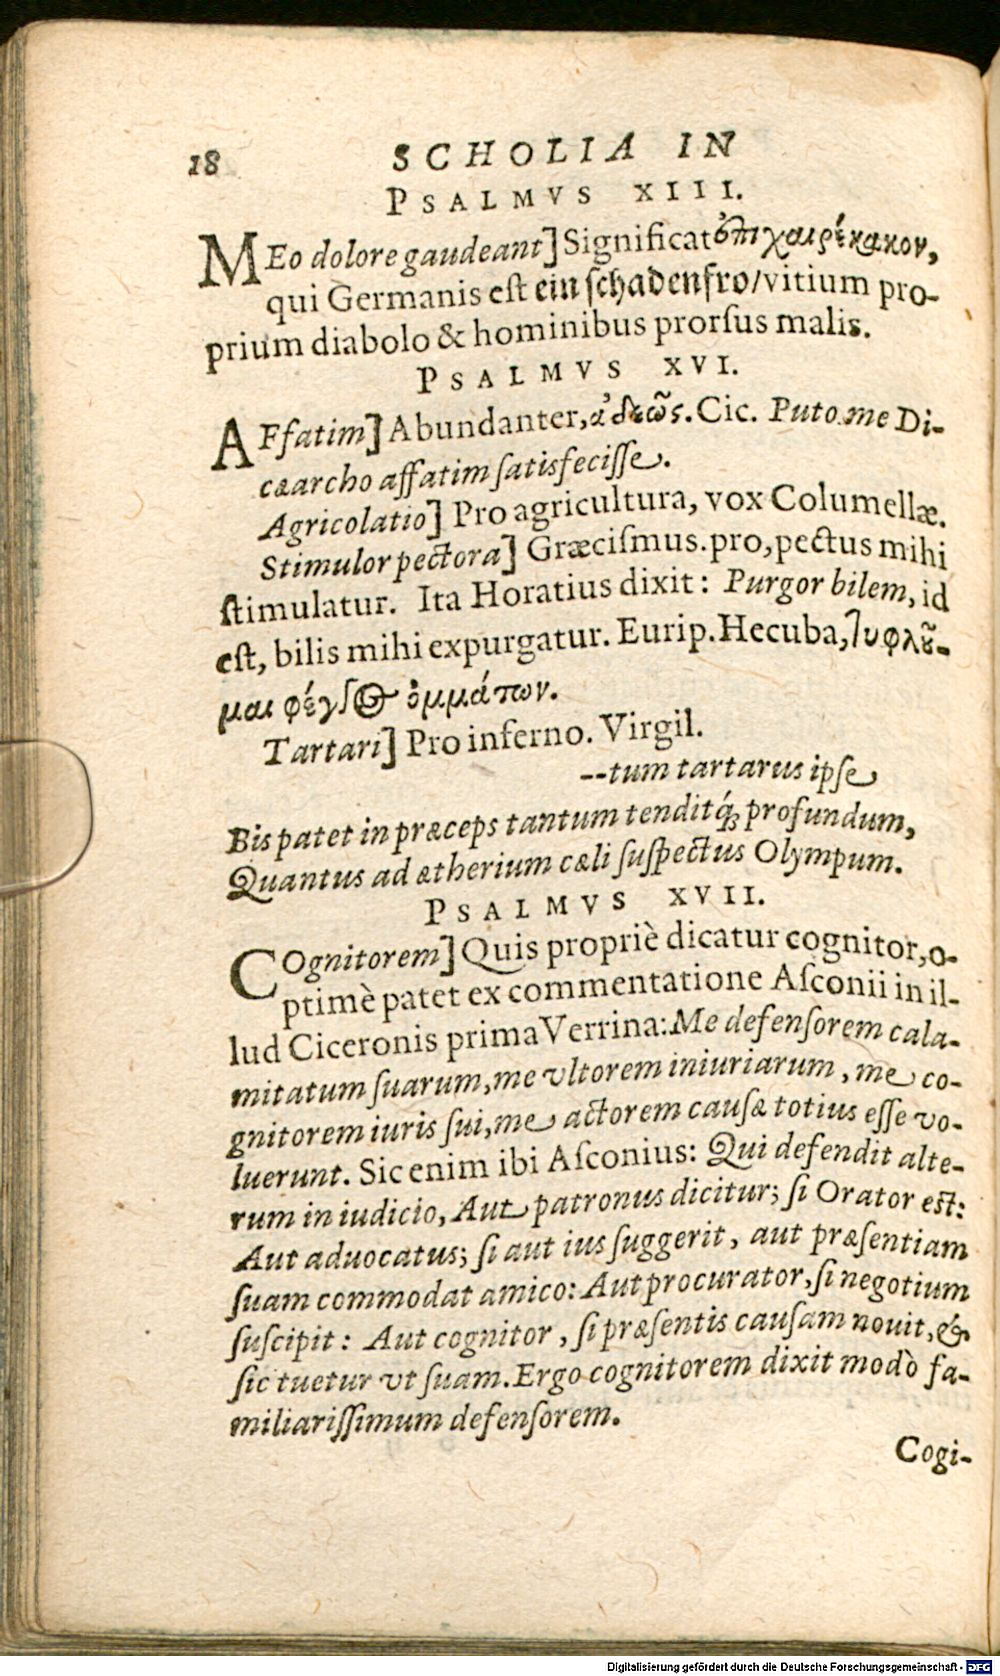 18 SCHOLIA IN
PSALMVS XIII.
MEo dolore gaudeant] Significat ἐπιχαιρέκακον,
qui Germanis est ein schadenfro/vitium pro-
prium diabolo & hominibus prorsus malis.
PSALMVS XVI.
AFfatim] Abundanter, ἀδεῶς. Cic. Puto me Di-
cæarcho affatim satisfecisse.
Agricolatio] Pro agricultura, vox Columellæ.
Stimulor pectora] Græcismus. pro, pectus mihi
stimulatur. Ita Horatius dixit: Purgor bilem, id
est, bilis mihi expurgatur. Eurip. Hecuba, τυφλοῦ-
μαι φέγγος ὀμμάτων.
Tartari] Pro inferno. Virgil.
--tum tartarus ipse
Bis patet in præceps tantum tenditq́; profundum,
Quantus ad ætherium cæli suspectus Olympum.
PSALMVS XVII.
COgnitorem] Quis propriè dicatur cognitor, o-
ptimè patet ex commentatione Asconii in il-
lud Ciceronis prima Verrina: Me defensorem cala-
mitatum suarum, me vltorem iniuriarum, me co-
gnitorem iuris sui, me actorem causæ totius esse vo-
luerunt. Sic enim ibi Asconius: Qui defendit alte-
rum in iudicio, Aut patronus dicitur; si Orator est:
Aut aduocatus; si aut ius suggerit, aut præsentiam
suam commodat amico: Aut procurator, si negotium
suscipit: Aut cognitor, si præsentis causam nouit, &
sic tuetur vt suam. Ergo cognitorem dixit modò fa-
miliarissimum defensorem.
Cogi-
Digitalisierung gefördert durch die Deutsche Forschungsgemeinschaft - DFG